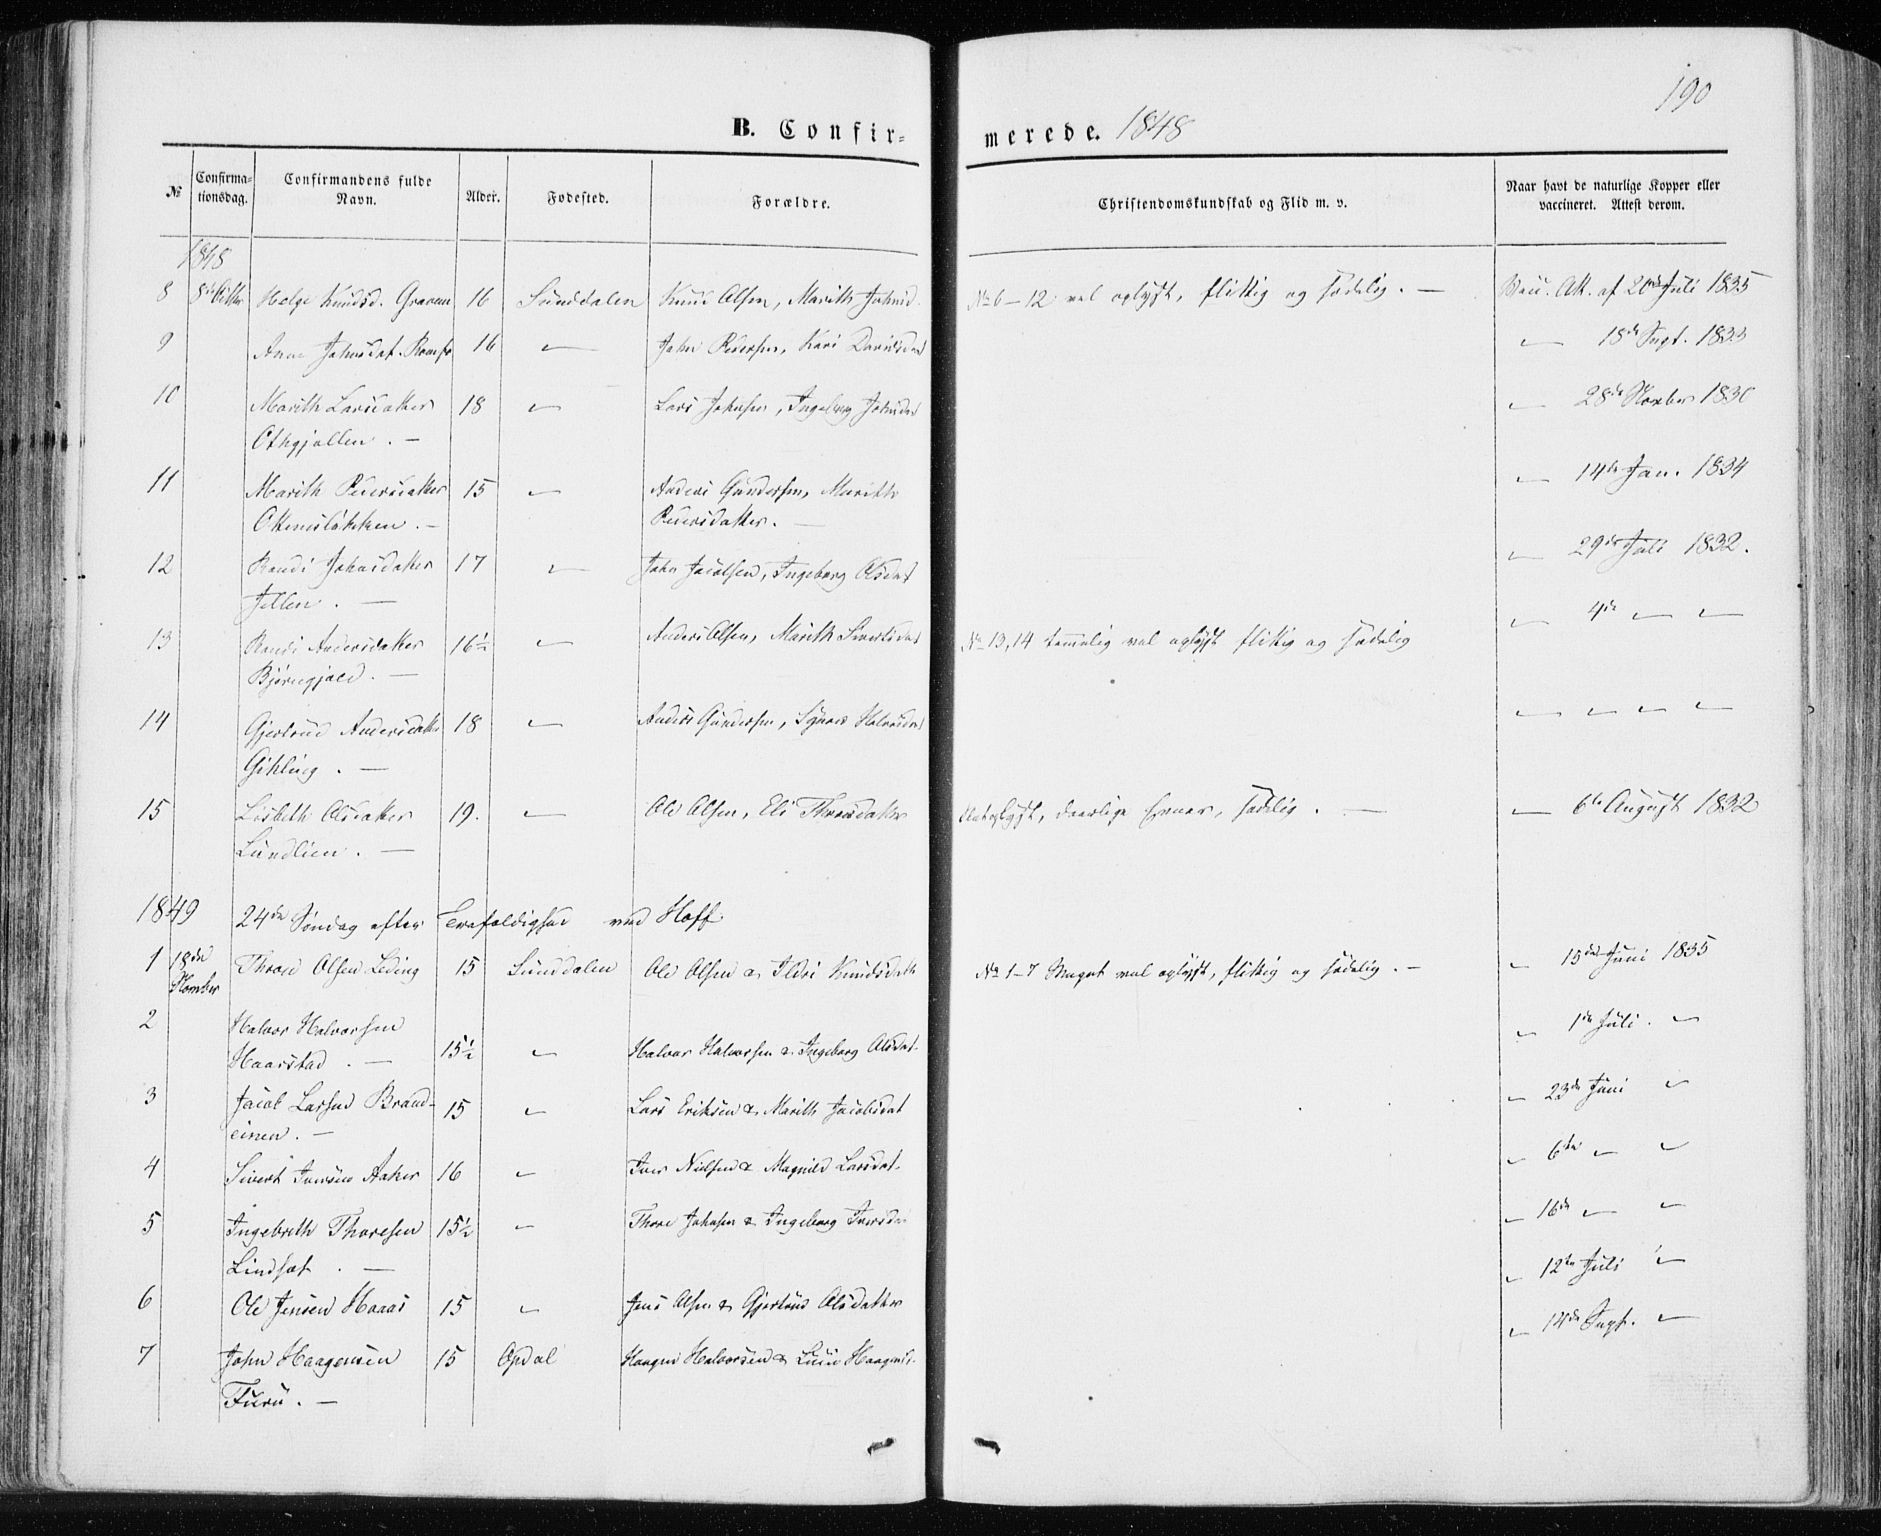 190
B. Confirmerede. 1848
№ Confirmationsdag. Confirmandens fulde Navn. Alder. Fødested. Forældre. Christendomskundskab og Flid m. v. Naar havt de naturlige Kopper eller vaccineret. Attest derom.
1848
8 8de Helge Knudsd. Graven 16 Sunddalen Knud Olsen, Marith Johnsd. No 6–12 vel oplyst, flittig og sædelig. — Vacc. Att. af Juli 1835
9 Anne Johnsdat. 16 — John Pedersen, Kari Davidsdat — 18de Sept. 1833
10 Marith Larsdatter 18 — Lars Johnsen, Ingeborg Johnsdat — 28de Novber 1830
Othgjellen. —
11 Marith Pedersdatter 15 — Anders Gundersen, Marith — 14de Jan. 1834
Ottemsløkken. — Pedersdatter. —
12 Randi Johnsdatter 17 — John Jacobsen, Ingeborg Olsdat — 29de Juli 1832.
Jellen. —
13 Randi Andersdatter 16½ — Anders Olsen, Marith Sivertsdat No 13, 14 temmelig vel oplyst flittig og sædelig — 4de — —
Bjørngjeld. —
14 Gjertrud Andersdatter 18 — Anders Gundersen, Halvorsdat — — — —
Gikling. —
15 Lisbeth Olsdatter 19. — Ole Olsen, Eli Thoresdatter oplyst, daarlige Evner, sædelig. — — 6te August 1832
Lundlien. —
1849 24de Søndag efter Trefoldighed ved Hoff
1 18de Novber Thore Olsen Leding 15 Sunddalen Ole Olsen & Ildri Knudsdatt No 1–7 Meget vel oplyst, flittig og sædelig. — — 15de Juni 1835
2 Halvor Halvorsen
Haarstad. — 15½ — Halvor Halvorsen & Ingeborg Olsdat. — 1de Juli. —
3 Jacob Larsen Brand- 15 — Lars Eriksen & Marith Jacobsdat — 23de Juni —
einen. —
4 Sivert Iversen Aaker 16 — Iver Nielsen & Magnild Larsdat. — 6te — —
5 Ingebrith Thoresen 15½ — Thore Johnsen & Ingeborg Iversdat — 16de — —
Lindset. —
6 Ole Jensen Haaas 15 — Jens Olsen & Gjertrud Olsdatter — 12te Juli —
7 John Haagensen 15 Opdal Haagen Halvorsen & Haagensd. — 14de Sept. —
Furu. —